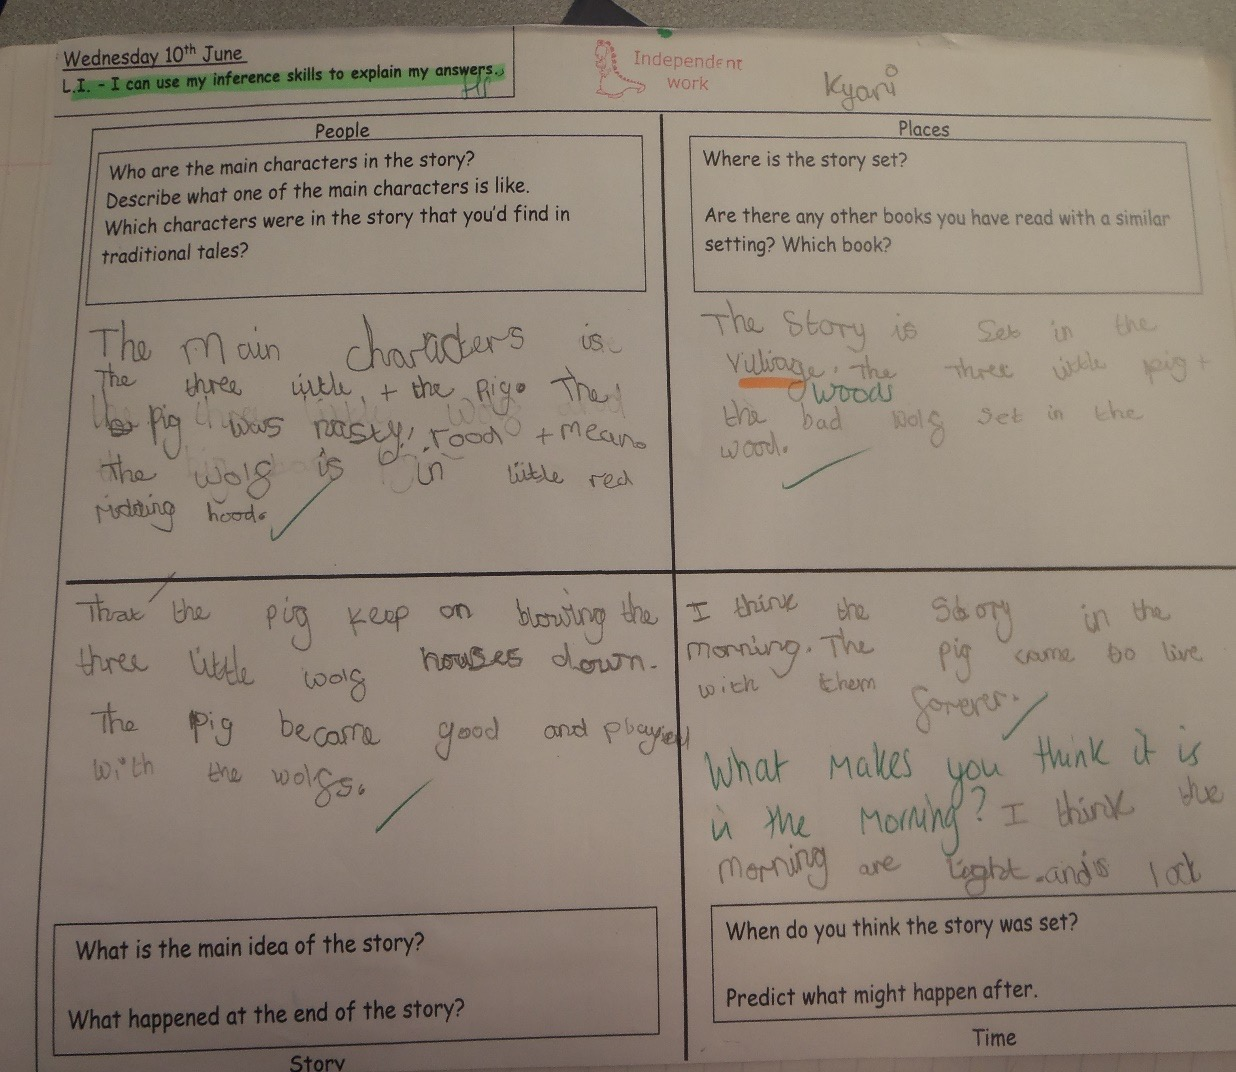 Wednesday 10th June
L.I. - I can use my inference skills to explain my answers.
Independent
work
Kyani
People
Who are the main characters in the story?
Describe what one of the main characters is like.
Which characters were in the story that you'd find in
traditional tales?
The main characters is
The three little + the Pig. The
pig was nasty, rood + mean.
the wolg is in little red
ridding hood.
Places
Where is the story set?
Are there any other books you have read with a similar
setting? Which book?
The Story is Set in the
Villiage. The three little pig +
woods
the bad wolg set in the
wood.
That the pig keep on blowing the
three little wolg houses down.
The pig became good and played
with the wolgs.
What is the main idea of the story?
What happened at the end of the story?
Story
I think the Story in the
morning. The pig came to live
with them forever.
What makes you think it is
in the morning? I think the
morning are light and is lock
When do you think the story was set?
Predict what might happen after.
Time